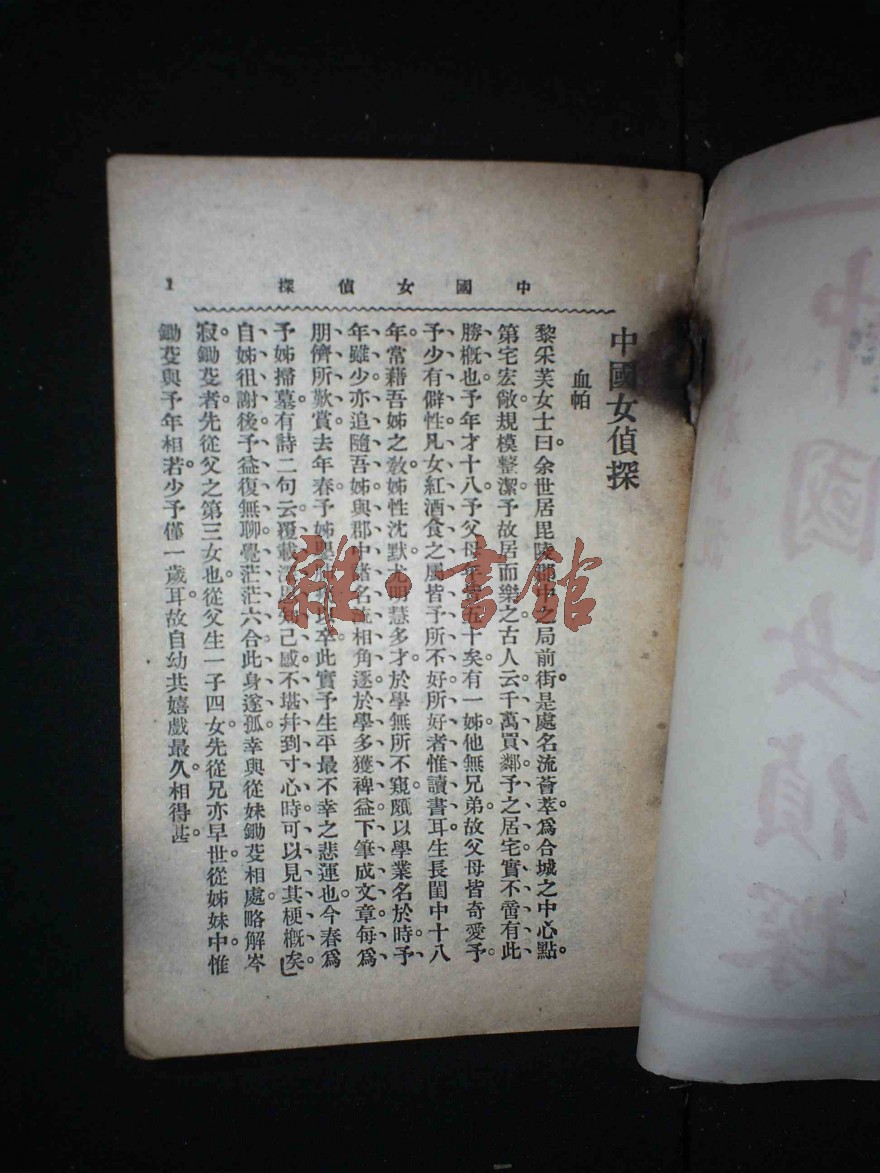 中國女偵探
1
中國女偵探
血帕
黎采芙女士曰。余世居毘陵郡中之局前街。是處名流薈萃。爲合城之中心點。
第宅宏敞。規模整潔。予故居而樂之。古人云。千萬買鄰。予之居宅。實不啻有此、
勝槪也。予年才十八。予父母年五十矣。有一姊。他無兄弟。故父母皆奇愛予。
予少有僻性。凡女紅酒食之屬。皆予所不好。所好者惟讀書耳。生長閨中十八
年、常藉吾姊之敎。姊性沈默。尤明慧多才。於學無所不窺。頗以學業名於時。予
年雖少。亦追隨吾姊。與郡中諸名流相角逐。於學多獲裨益。下筆成文章。每爲
朋儕所歎賞。去年春。予姊以卒。此實予生平最不幸之悲運也。今春爲
予姊掃墓。有詩二句云。覆載知己感。不堪幷到寸心時。可以見其梗槪矣。
自姊徂謝後。予益復無聊。覺茫茫六合。此身遂孤。幸與從妹鋤芟相處。略解岑
寂。鋤芟者。先從父之第三女也。從父生一子四女。先從兄亦早世。從姊妹中。惟
鋤芟與予年相若。少予僅一歲耳。故自幼共嬉戲最久。相得甚。
雜·書館
中國女偵探